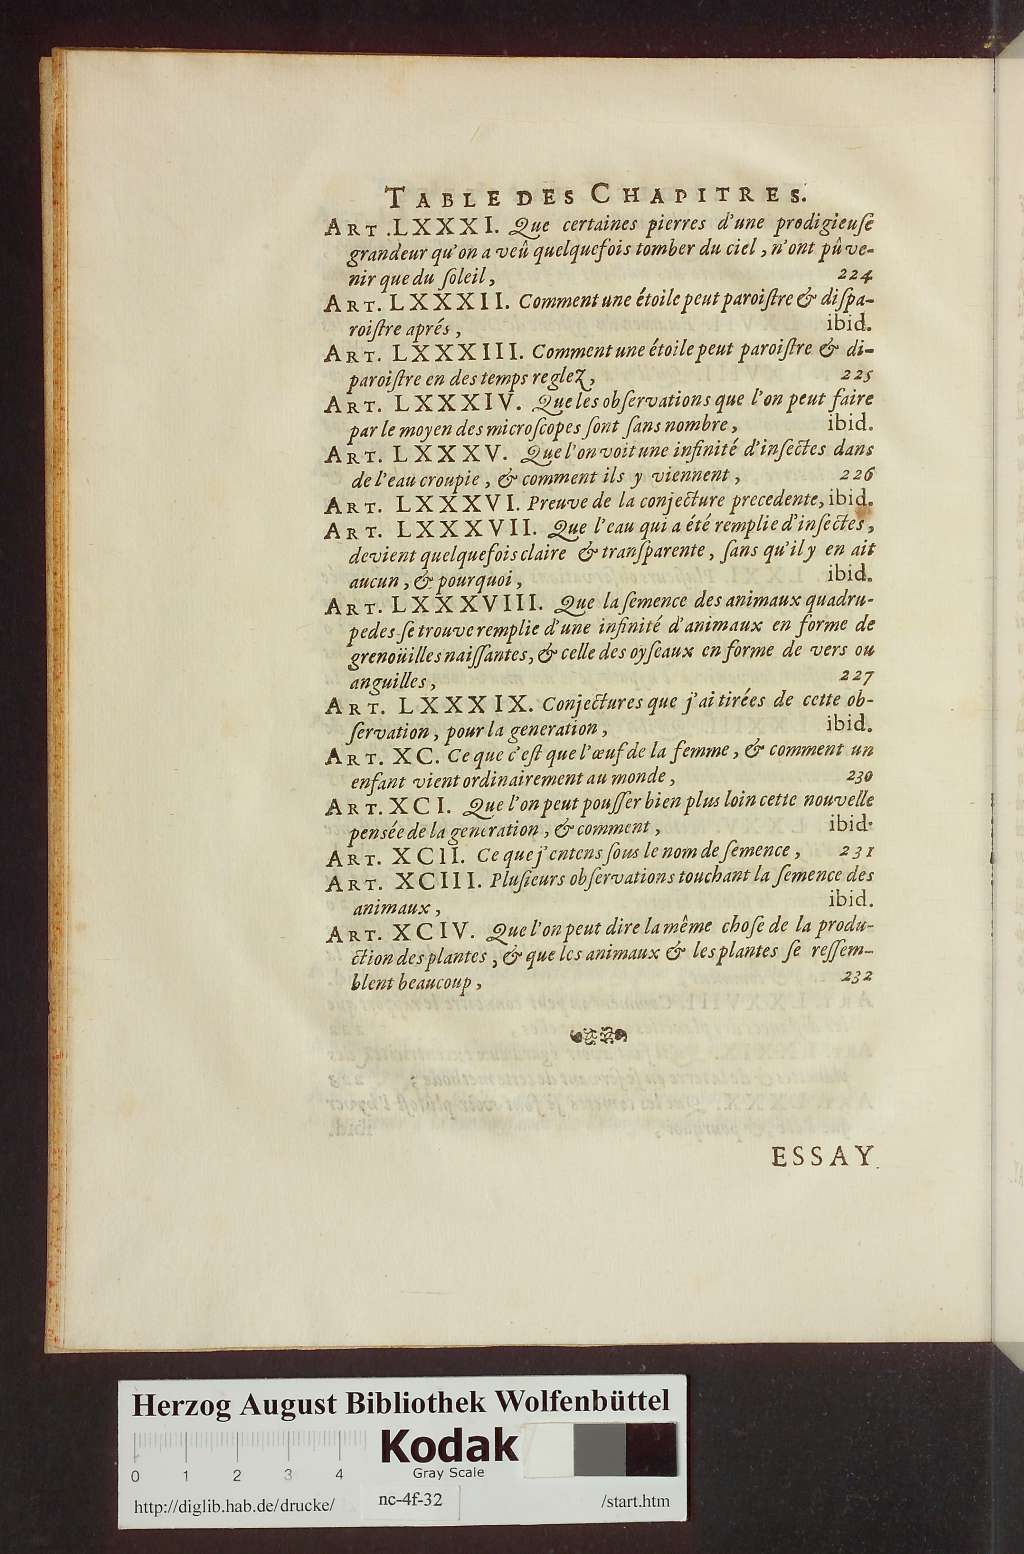 TABLE DES CHAPITRES.
ART. LXXXI. Que certaines pierres d'une prodigieuſe
grandeur qu'on a veû quelquefois tomber du ciel, n'ont pû ve-
nir que du ſoleil, 224
ART. LXXXII. Comment une étoile peut paroiſtre & diſpa-
roiſtre aprés, ibid.
ART. LXXXIII. Comment une étoile peut paroiſtre & di-
paroiſtre en des temps reglez, 225
ART. LXXXIV. Que les obſervations que l'on peut faire
par le moyen des microſcopes ſont ſans nombre, ibid.
ART. LXXXV. Que l'on voit une infinité d'inſectes dans
de l'eau croupie, & comment ils y viennent, 226
ART. LXXXVI. Preuve de la conjecture precedente, ibid.
ART. LXXXVII. Que l'eau qui a été remplie d'inſectes,
devient quelquefois claire & tranſparente, ſans qu'il y en ait
aucun, & pourquoi, ibid.
ART. LXXXVIII. Que la ſemence des animaux quadru-
pedes ſe trouve remplie d'une infinité d'animaux en forme de
grenoüilles naiſſantes, & celle des oyſeaux en forme de vers ou
anguilles, 227
ART. LXXXIX. Conjectures que j'ai tirées de cette ob-
ſervation, pour la generation, ibid.
ART. XC. Ce que c'eſt que l'œuf de la femme, & comment un
enfant vient ordinairement au monde, 230
ART. XCI. Que l'on peut pouſſer bien plus loin cette nouvelle
penſée de la generation, & comment, ibid.
ART. XCII. Ce que j'entens ſous le nom de ſemence, 231
ART. XCIII. Pluſieurs obſervations touchant la ſemence des
animaux, ibid.
ART. XCIV. Que l'on peut dire la même choſe de la produ-
ction des plantes, & que les animaux & les plantes ſe reſſem-
blent beaucoup, 232
ESSAY
Herzog August Bibliothek Wolfenbüttel
Kodak
Gray Scale
0 1 2 3 4
http://diglib.hab.de/drucke/ nc-4f-32 /start.htm